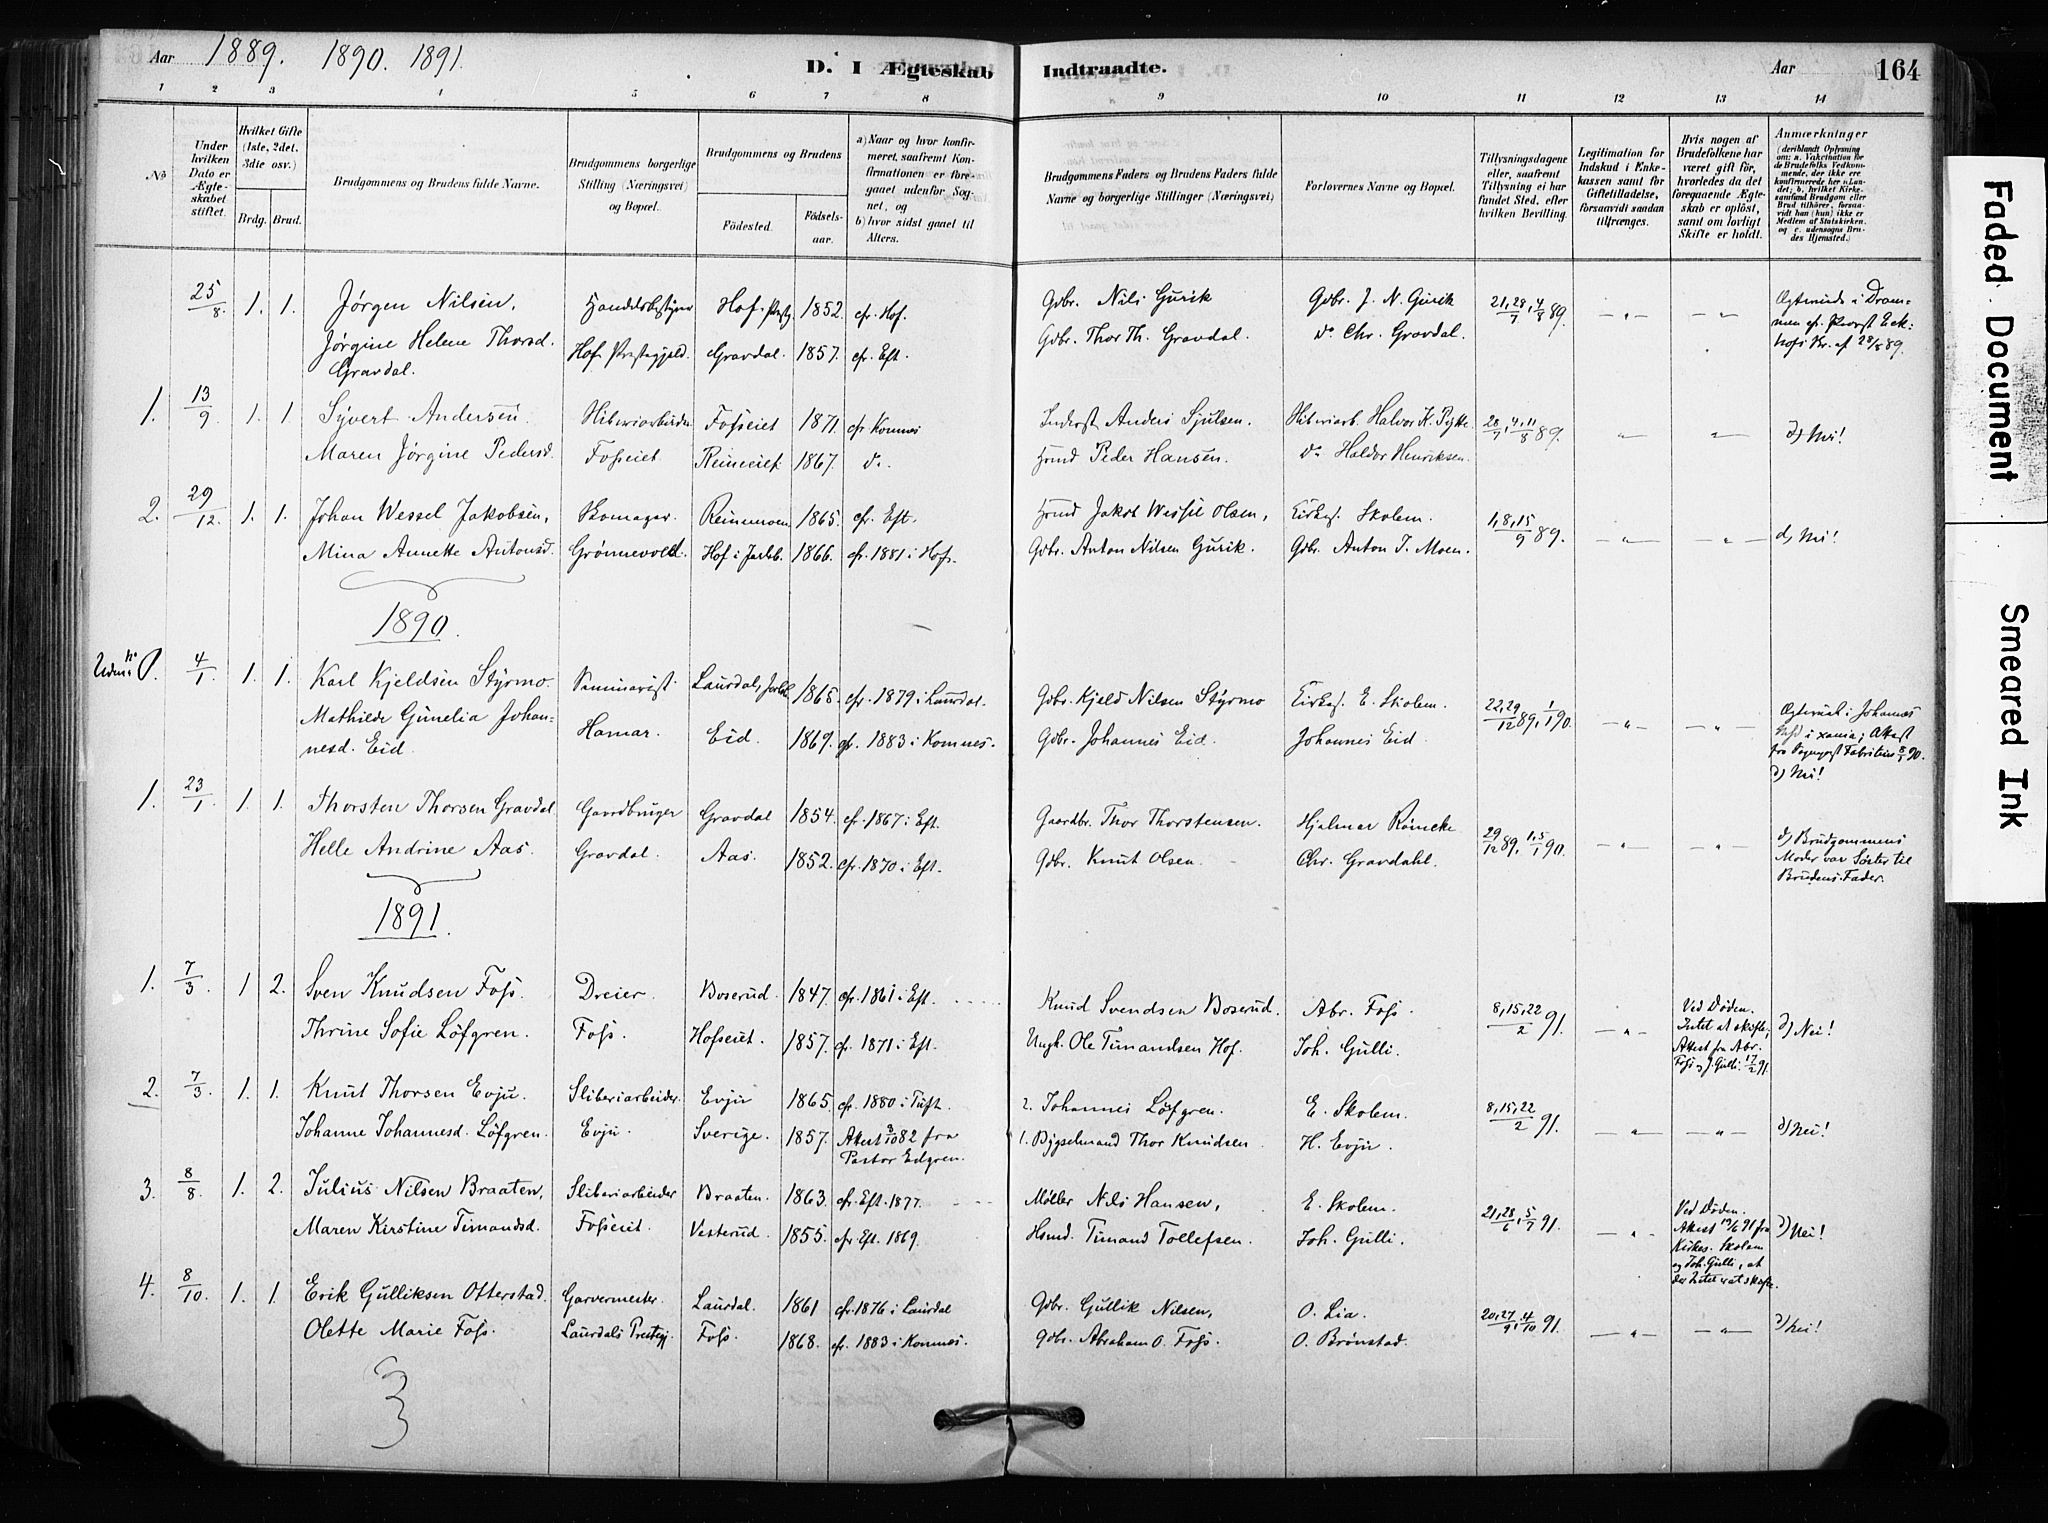 Aar 1889. 1890. 1891. D. I Ægteskab Indtraadte. Aar 164
1 2 3 4 5 6 7 8 9 10 11 12 13 14
No
Under hvilken Dato er Ægteskabet stiftet.
Hvilket Gifte (1ste, 2det, 3die osv.)
Brdg. Brud.
Brudgommens og Brudens fulde Navne.
Brudgommens borgerlige Stilling (Næringsvei) og Bopæl.
Brudgommens og Brudens
Fødested. Fødselsaar.
a) Naar og hvor konfirmeret, saafremt Konfirmationen er foregaaet udenfor Sognet, og
b) hvor sidst gaaet til Alters.
Brudgommens Faders og Brudens Faders fulde Navne og borgerlige Stillinger (Næringsvei)
Forlovernes Navne og Bopæl.
Tillysningsdagene eller, saafremt Tillysning ei har fundet Sted, efter hvilken Bevilling.
Legitimation for Indskud i Enkekassen samt for Giftetilladelse, forsaavidt saadan tiltrænges.
Hvis nogen af Brudefolkene har været gift før, hvorledes da det foregaaende Ægteskab er opløst, samt om lovligt Skifte er holdt.
Anmærkninger (deriblandt Oplysning om: a. Vakcination for de Brudefolks Vedkommende, der ikke ere konfirmerede her i Landet; b. hvilket Kirkesamfund Brudgom eller Brud tilhører, forsaavidt han (hun) ikke er Medlem af Statskirken, og c. udensogns Brudes Hjemsted.)
25/8. 1. 1. Jørgen Nilsen, Handelsbestyrer Hof Prstg. 1852. cfr. Hof. Gdbr. Nils Gurik Gdbr. J. N. Gurik 21, 28/7, 4/8 89. — " — — " — Ægteviede i Dram-
Jørgine Helene Thorsd. Hof Prestegjeld. Gravdal. 1857. cfr. Eft. Gdbr. Thor Th. Gravdal. do Chr. Gravdal. men cfr. Provst Eck-
Gravdal. hofs Br. af 28/8 89.
1. 13/9 1. 1 Syvert Andersen. Sliberiarbeider Fosseiet 1871 cfr Komnes Inderst Anders Sjulsen. Sliberiarb. Halvor K. Pytte 28/7, 4, 11/8 89. " — " — d) Nei!
Maren Jørgine Pedersd. Fosseiet Reineeiet 1867. do. Hmd Peder Hansen. do Haldor Henriksen.
2. 29/12. 1. 1. Johan Wessel Jakobsen, Skomager. Reinemoen 1865. cfr. Eft. Hmd Jakob Wessel Olsen, Kirkes. Skolem. 1, 8, 15/9 89. — " — — " — d, Nei!
Mina Annette Antonsd. Grønnevold. Hof i Jarlsb. 1866. cfr. 1881 i Hof. Gdbr. Anton Nilsen Gurik. Gdbr. Anton T. Moen.
1890.
4/1 1. 1. Karl Kjeldsen Styrmo. Seminarist Laurdal, Jarlsb. 1865. cfr. 1879 i Laurdal. Gdbr. Kjeld Nilsen Styrmo Kirkes. E. Skolem. 22, 29/12 89, 1/1 90. — " — — " — Ægteviet i Johannes
Mathilde Gunelia Johan- Hamar. Eid. 1869. cfr. 1883 i Komnes. Gdbr. Johannes Eid. Johannes Eid i xania; Attest
nesd. Eid. fra Sognepst Fabritius 8/1 90.
d) Nei!
1. 23/1. 1. 1. Thorsten Thorsen Gravdal Gaardbruger Gravdal 1854. cfr. 1867 i Eft. Gaardbr. Thor Thorstensen. Hjalmar Römcke 29/12 89, 1, 5/1 90. — " — — " — d) Brudgommens
Helle Andrine Aas. Gravdal. Aas. 1852. cfr. 1870 i Eft. Gdbr. Knut Olsen Chr. Gravdahl. Moder var Søster til
Brudens Fader.
1891.
1. 7/3. 1 2. Sven Knudsen Foss. Dreier. Boserud. 1847. cfr. 1861 i Eft. Knud Svendsen Boserud. Abr. Foss. 8, 15, 22/2 91. — " — Ved Døden. Intet at skifte, Attest fra Abr. Foss og J. Gulli 17/2 91. d) Nei!
Thrine Sofie Löfgren. Foss. Hofseiet. 1857. cfr. 1871 i Eft. Ungk. Ole Timandsen Hof. Joh. Gulli.
2. 7/3. 1. 1. Knut Thorsen Evju. Sliberiarbeider. Evju 1865. cfr. 1880 i Tuft. 2. Johannes Löfgren. E. Skolem. 8, 15, 22/2 91. — " — — " — d) Nei!
Johanne Johannesd. Löfgren. Evju. Sverige. 1857. Attest 3/10 82 fra 1. Bygselmand Thor Knudsen H. Evju.
Pastor Edgren.
3. 8/8. 1. 2. Julius Nilsen Braaten, Sliberiarbeider Braaten. 1863 cfr. Eft. 1877. Møller Nils Hansen, E. Skolem. 21, 28/6, 5/7 91. — " — Ved Døden. Attest 19/6 91 fra Kirkes. Skolem og Joh. Gulli, at der Intet er at skifte. d) Nei!
Maren Kirstine Timandsd. Fosseiet. Vesterud. 1855. cfr. Eft. 1869. Hsmd. Timand Tollefsen. Joh. Gulli.
4. 8/10. 1. 1. Erik Gulliksen Ofterstad. Garvermester. Laurdal. 1861 cfr. 1876 i Laurdal Gdbr. Gullik Nilsen, O. Lia. 20, 27/9, 4/10 91. — " — — " — d) Nei!
Olette Marie Foss. Laurdals Prestegj. Foss. 1868. cfr. 1883 i Komnes. Gdbr. Abraham O. Foss. O. Brønstad.
3
Faded Document
Smeared Ink